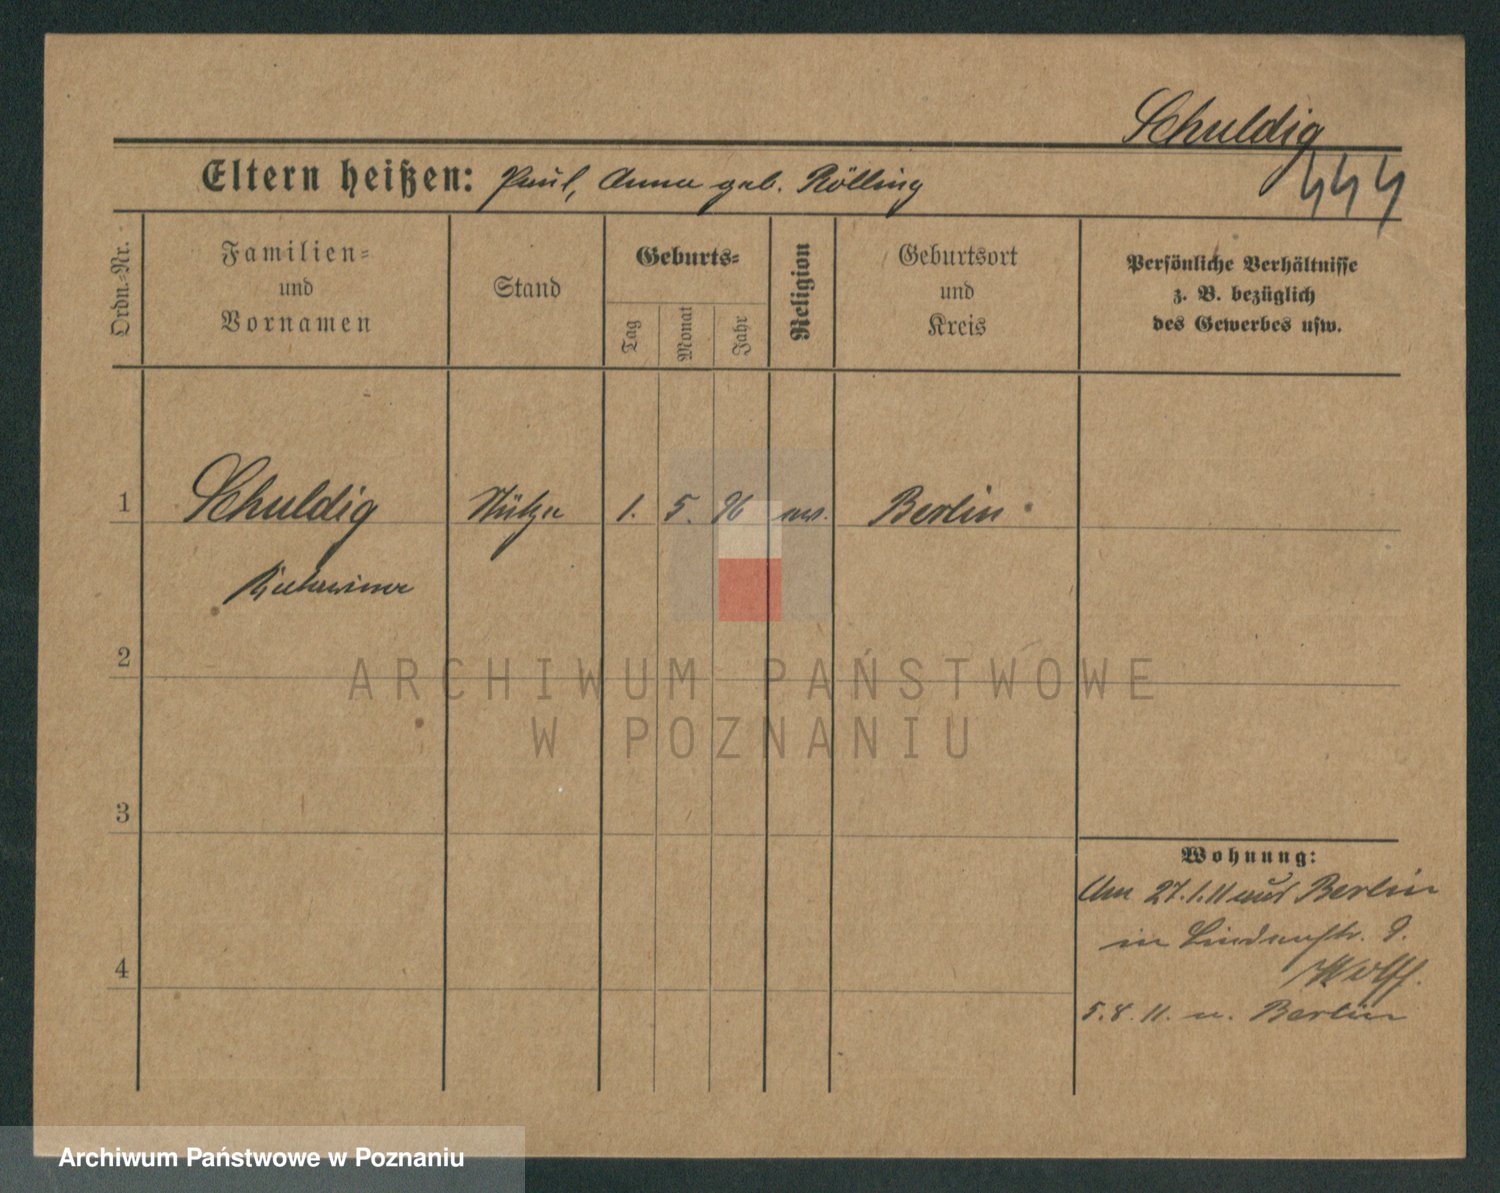 Schuldig
444
Eltern heißen: Paul, Anna geb. Rölling
Ordn.-Nr.
Familien-
und
Vornamen
Stand
Geburts-
Tag
Monat
Jahr
Religion
Geburtsort
und
Kreis
Persönliche Verhältnisse
z. B. bezüglich
des Gewerbes usw.
1 Schuldig Stütze 1. 5. 96 ev. Berlin
2
3
4
Wohnung:
Am 27.1.11 aus Berlin
in Lindenstr. 9.
Wolff.
5.8.11. n. Berlin
ARCHIWUM PAŃSTWOWE
W POZNANIU
Archiwum Państwowe w Poznaniu